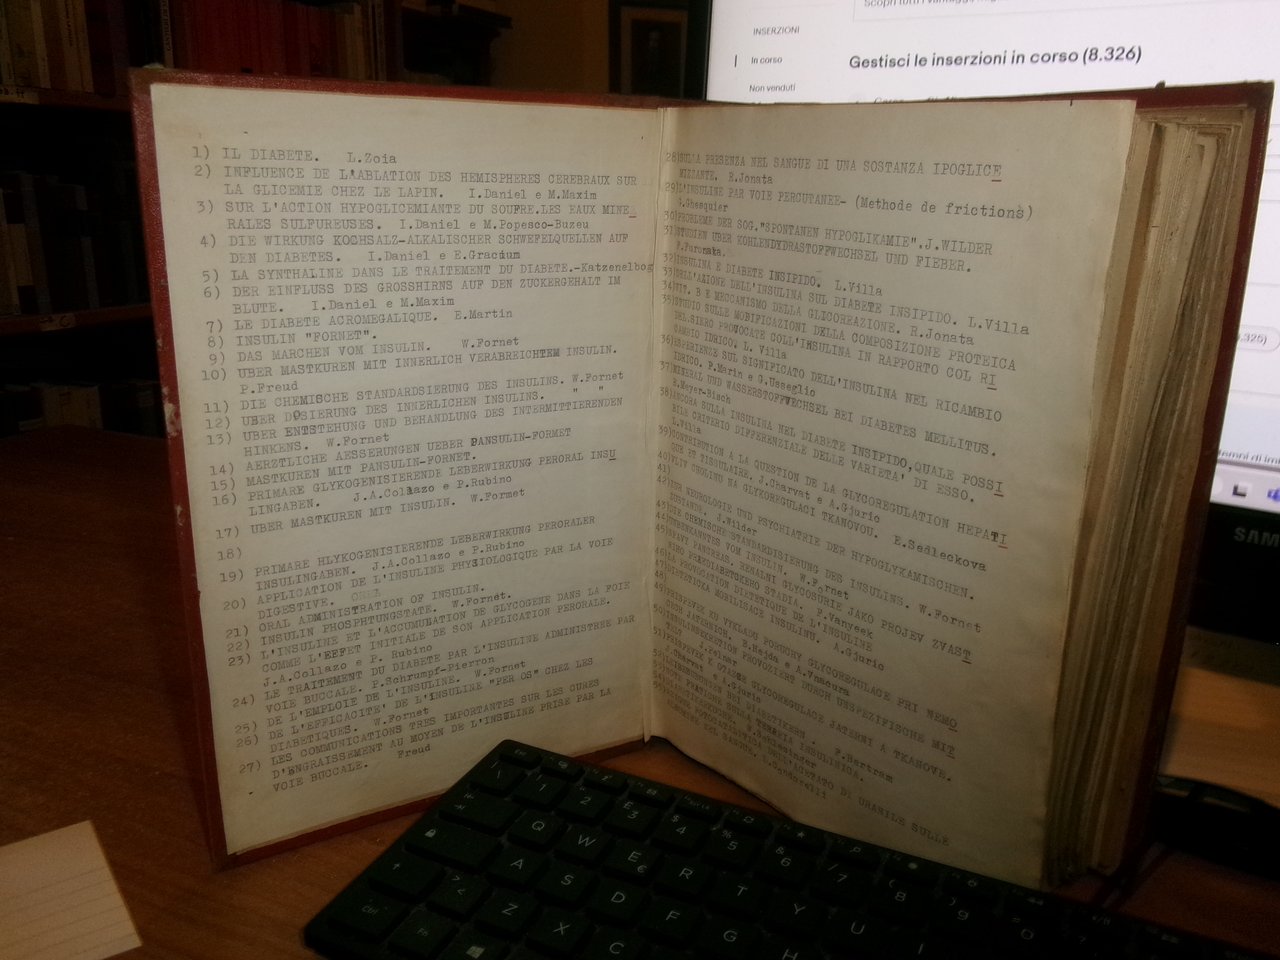 Scopri tutti i vantaggi
INSERZIONI
In corso
Non venduti
Gestisci le inserzioni in corso (8.326)
1) IL DIABETE. L.Zoia
2) INFLUENCE DE L'ABLATION DES HEMISPHERES CEREBRAUX SUR
LA GLICEMIE CHEZ LE LAPIN. I.Daniel e M.Maxim
3) SUR L'ACTION HYPOGLICEMIANTE DU SOUFRE.LES EAUX MINE
RALES SULFUREUSES. I.Daniel e M.Popesco-Buzeu
4) DIE WIRKUNG KOCHSALZ-ALKALISCHER SCHWEFELQUELLEN AUF
DEN DIABETES. I.Daniel e E.Gracium
5) LA SYNTHALINE DANS LE TRAITEMENT DU DIABETE.-Katzenelbog
6) DER EINFLUSS DES GROSSHIRNS AUF DEN ZUCKERGEHALT IM
BLUTE. I.Daniel e M.Maxim
7) LE DIABETE ACROMEGALIQUE. E.Martin
8) INSULIN "FORNET".
9) DAS MARCHEN VOM INSULIN. W.Fornet
10) UBER MASTKUREN MIT INNERLICH VERABREICHTEM INSULIN.
P.Freud
11) DIE CHEMISCHE STANDARDSIERUNG DES INSULINS. W.Fornet
12) UBER DOSIERUNG DES INNERLICHEN INSULINS. " "
13) UBER ENTSTEHUNG UND BEHANDLUNG DES INTERMITTIERENDEN
HINKENS. W.Fornet
14) AERZTLICHE AESSERUNGEN UEBER PANSULIN-FORMET
15) MASTKUREN MIT PANSULIN-FORNET.
16) PRIMARE GLYKOGENISIERENDE LEBERWIRKUNG PERORAL INSU
LINGABEN. J.A.Collazo e P.Rubino
17) UBER MASTKUREN MIT INSULIN. W.Formet
18)
19) PRIMARE HLYKOGENISIERENDE LEBERWIRKUNG PERORALER
INSULINGABEN. J.A.Collazo e P.Rubino
20) APPLICATION DE L'INSULINE PHYSIOLOGIQUE PAR LA VOIE
DIGESTIVE.
21) ORAL ADMINISTRATION OF INSULIN.
22) INSULIN PHOSPHTUNGSTATE. W.Fornet.
23) L'INSULINE ET L'ACCUMULATION DE GLYCOGENE DANS LA FOIE
COMME L'EFFET INITIALE DE SON APPLICATION PERORALE.
J.A.Collazo e P. Rubino
24) LE TRAITEMENT DU DIABETE PAR L'INSULINE ADMINISTREE PAR
VOIE BUCCALE. P.Schrumpf-Pierron
25) DE L'EMPLOIE DE L'INSULINE. W.Fornet
26) DE L'EFFICACITE' DE L'INSULINE "PER OS" CHEZ LES
DIABETIQUES. W.Fornet
27) LES COMMUNICATIONS TRES IMPORTANTES SUR LES CURES
D'ENGRAISSEMENT AU MOYEN DE L'INSULINE PRISE PAR LA
VOIE BUCCALE. Freud
28)SUL'A PRESENZA NEL SANGUE DI UNA SOSTANZA IPOGLICE
MIZZANTE. R.Jonata
29)L'INSULINE PAR VOIE PERCUTANEE- (Methode de frictions)
G.Ghesquier
30)PROBLEME DER SOG."SPONTANEN HYPOGLIKAMIE".J.WILDER
31)STUDIEN UBER KOHLENDYDRASTOFFWECHSEL UND FIEBER.
F.Furonata.
32)INSULINA E DIABETE INSIPIDO. L.Villa
33)DELL'AZIONE DELL'INSULINA SUL DIABETE INSIPIDO. L.Villa
34)VIT. B E MECCANISMO DELLA GLICOREAZIONE. R.Jonata
35)STUDIO SULLE MOBIFICAZIONI DELLA COMPOSIZIONE PROTEICA
DEL SIERO PROVOCATE COLL'INSULINA IN RAPPORTO COL RI
CAMBIO IDRICO. L. Villa
36)ESPERIENZE SUL SIGNIFICATO DELL'INSULINA NEL RICAMBIO
IDRICO. P.Marin e G.Usseglio
37)MINERAL UND WASSERSTOFFWECHSEL BEI DIABETES MELLITUS.
E.Meyer-Bisch
38)ANCORA SULLA INSULINA NEL DIABETE INSIPIDO,QUALE POSSI
BILE CRITERIO DIFFERENZIALE DELLE VARIETA' DI ESSO.
L.Villa
39)CONTRIBUTION A LA QUESTION DE LA GLYCOREGULATION HEPATI
QUE ET TISSULAIRE. J.Charvat e A.Gjuric
40)VLIV CHOLINU NA GLYKOREGULACI TKANOVOU. E.Sedleckova
41)
42)ZUR NEUROLOGIE UND PSYCHIATRIE DER HYPOGLYKAMISCHEN.
ZUSTANDE. J.Wilder
43)DIE CHEMISCHE STANDARDISIERUNG DES INSULINS. W.Fornet
44)UNBEKANNTES VOM INSULIN. W.Fornet
45)RENALNI GLYCOSURIE JAKO PROJEV ZVAST
NIHO PREDIABETCKEHO STADIA. P.Vanyeek
46)LA PROVOCATION DIETETIQUE DE L'INSULINE
47)DIETETICKA MOBILISACE INSULINU. A.Gjuric
48)
49)PRISPEVEK KU VYKLADU PORUCHY GLYCOREGULACE PRI NEMO
CECH JATERNICH. E.Hejda e A.Vnacura
50)INSULINSEKRETION PROVOZIERT DURCH UNSPEZIFISCHE MIT
TELS. J.Pelnar
51)PRISPEVEK K OTAZCE GLYCOREGULACE JATERNI A TKANOVE.
J.Charvat e A.Gjuric
F.Bartram
E.Schlesinger
DELL'ACETATO DI URASILE SULLE
DEL SANGUE. L.Condorelli
SAMS